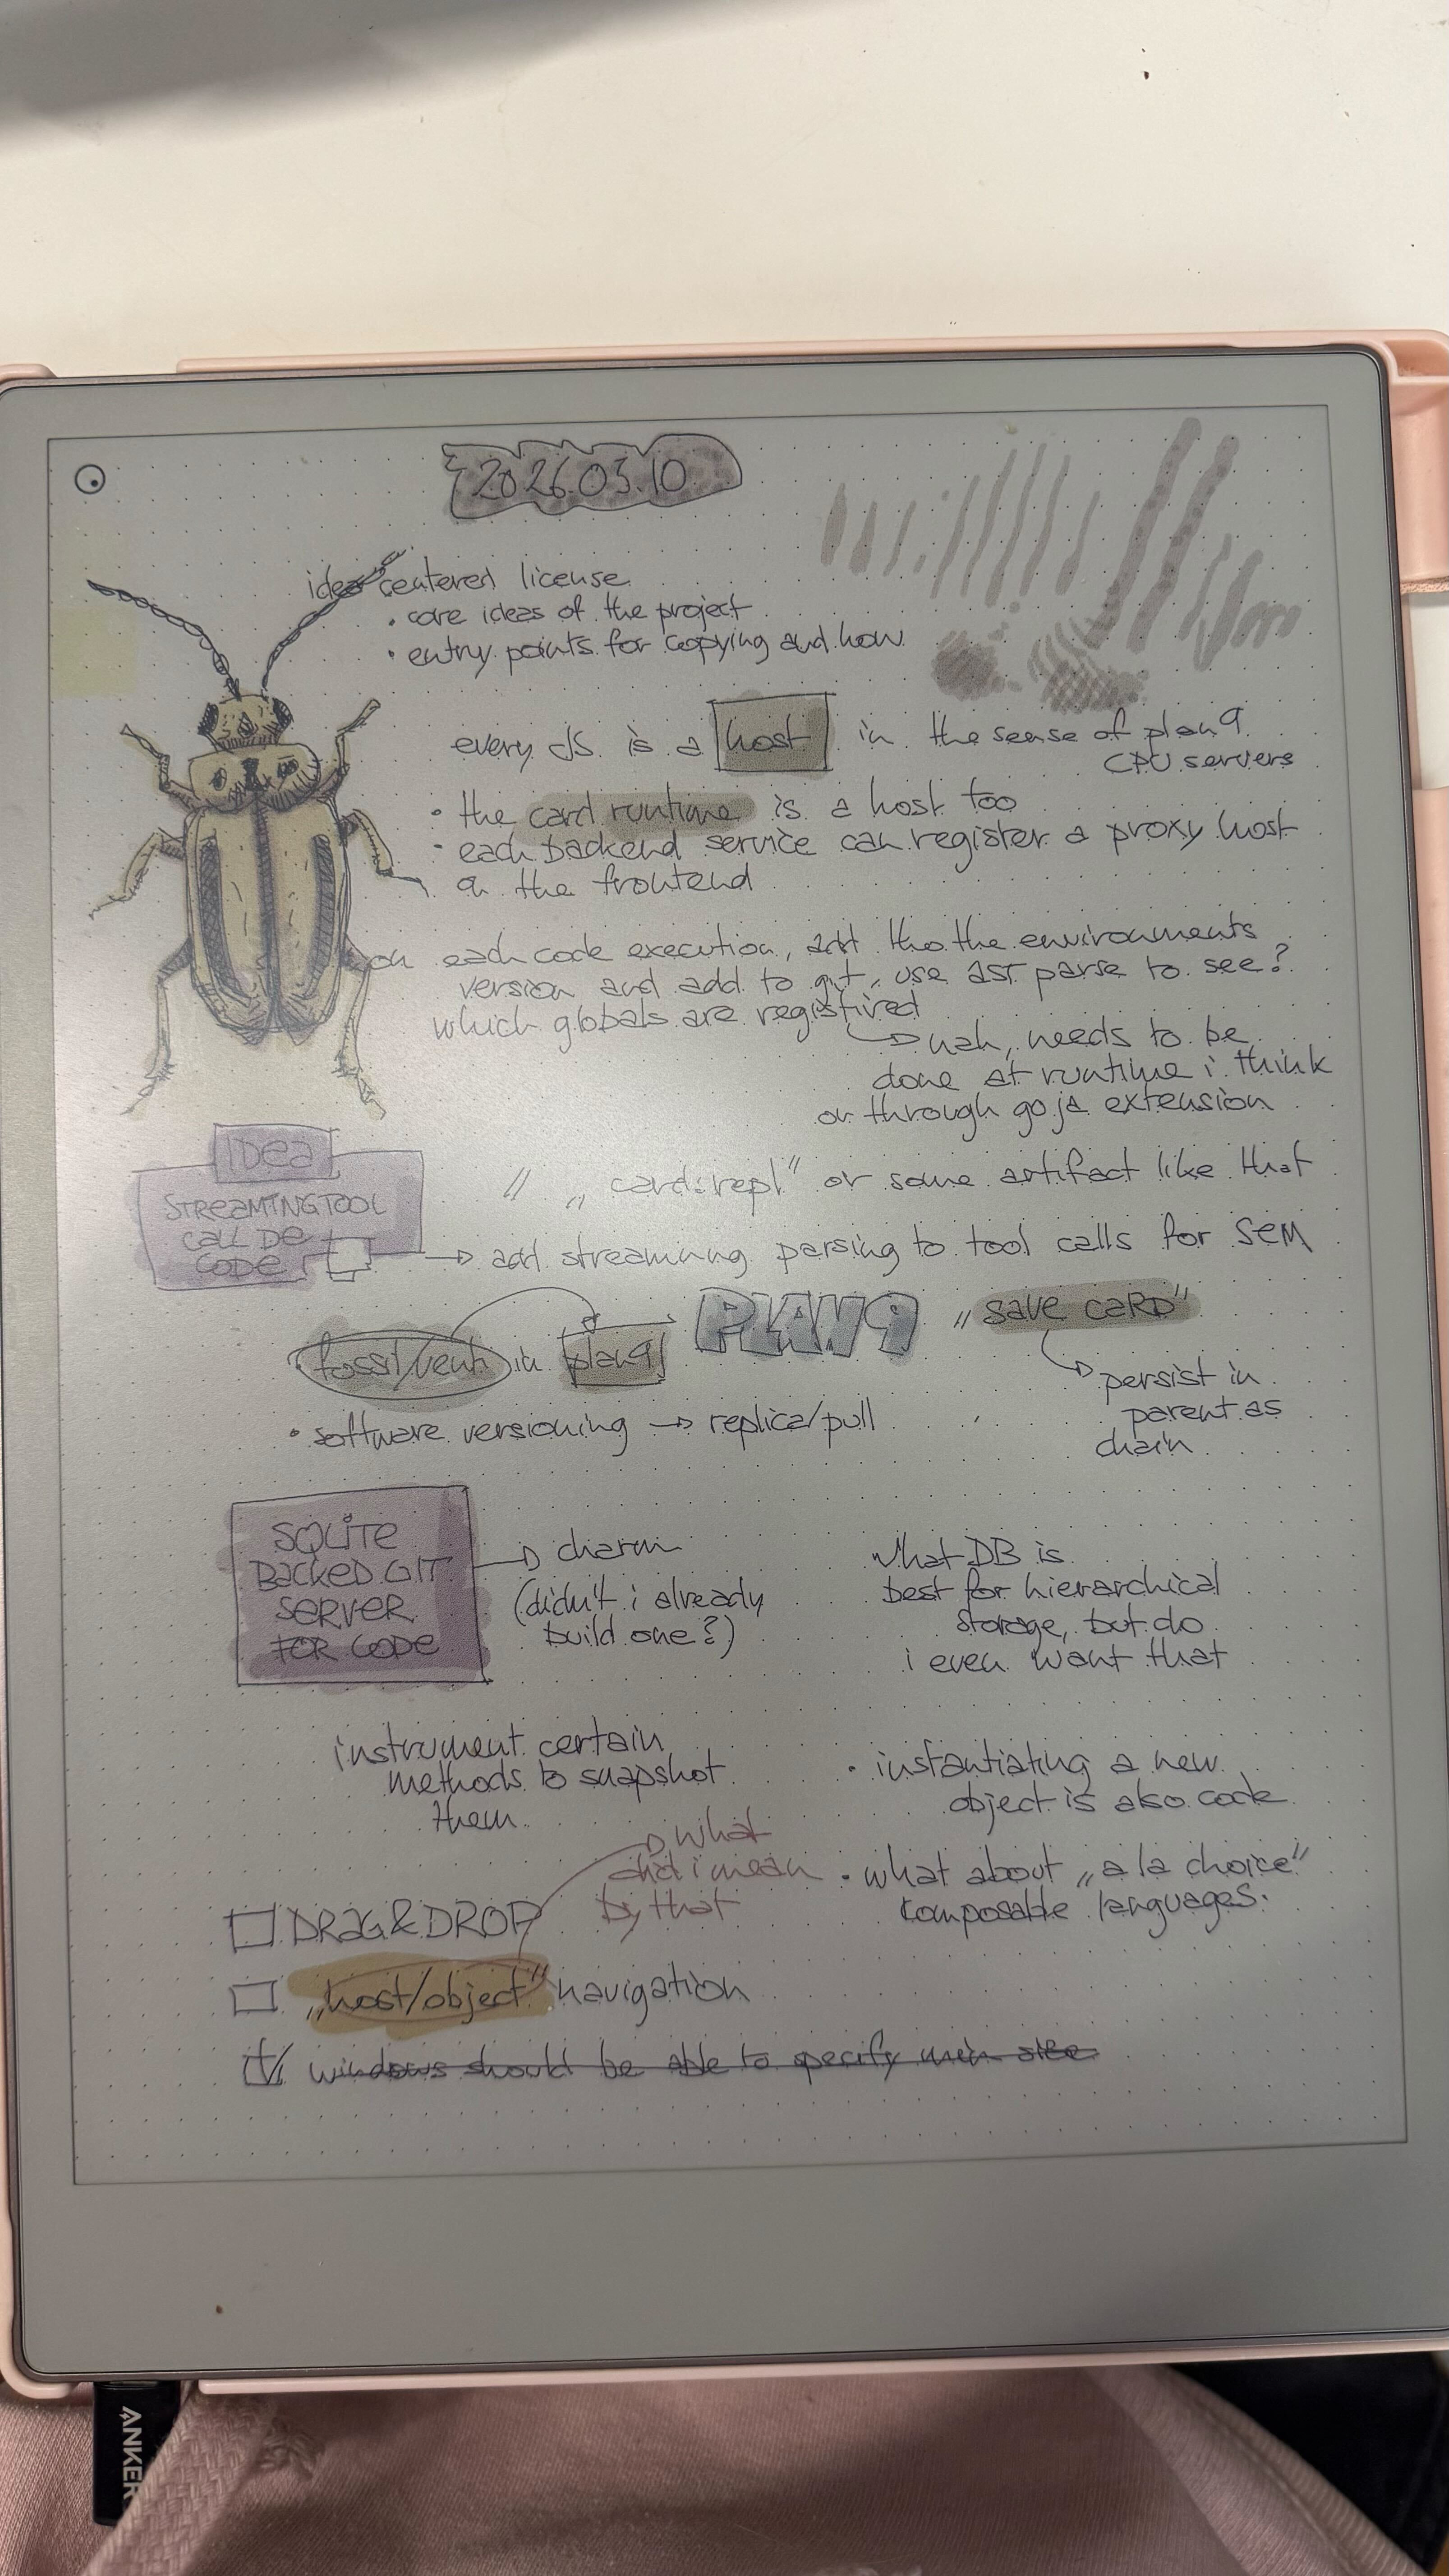 2026.03.10
idea centered license
• core ideas of the project
• entry points for copying and how
every JS is a host in the sense of plan9
CPU servers
• the card runtime is a host too
• each backend service can register a proxy host
on the frontend
on each code execution, add the environments
version and add to git, use AST parse to see?
which globals are registired
→ nah, needs to be
done at runtime i think
or through goja extension
IDea
STReaMING TOOL
CaLL De
CODe
// „card:repl" or some artifact like that
→ add streaming parsing to tool calls for SEM
fossil/venti in plan9
PLAN9
"save caRD"
→ persist in
parent as
chain
• software versioning → replica/pull
SQLiTe
BacKeD GIT
SeRVeR
FOR CODe
→ charm
(didn't i already
build one?)
what DB is
best for hierarchical
storage, but do
i even want that
instrument certain
methods to snapshot
them
• instantiating a new
object is also code
→ what
did i mean
by that
• what about „a la choice"
composable languages.
DRaG&DROP
„host/object" navigation
windows should be able to specify min size
ANKER